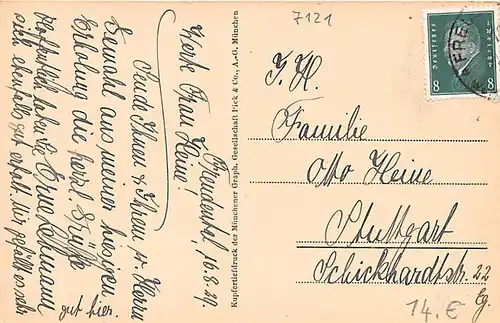 7121
Freudenst., 16.8.29.
Werte Frau Heine!
Send Ihnen & Ihrem w. Herrn
Gemahl aus meiner hiesigen
Erholung die herzl. Grüße
Hoffentlich haben Sie
sich ebenfalls gut erholt. Mir gefällt es sehr
gut hier.
Kupfertiefdruck der Münchener Graph. Gesellschaft Pick & Co., A.-G. München
Deutsches Reich
8 8
FREU
I. H.
Familie
Otto Heine
Stuttgart
Schickhardtstr. 22
14.€